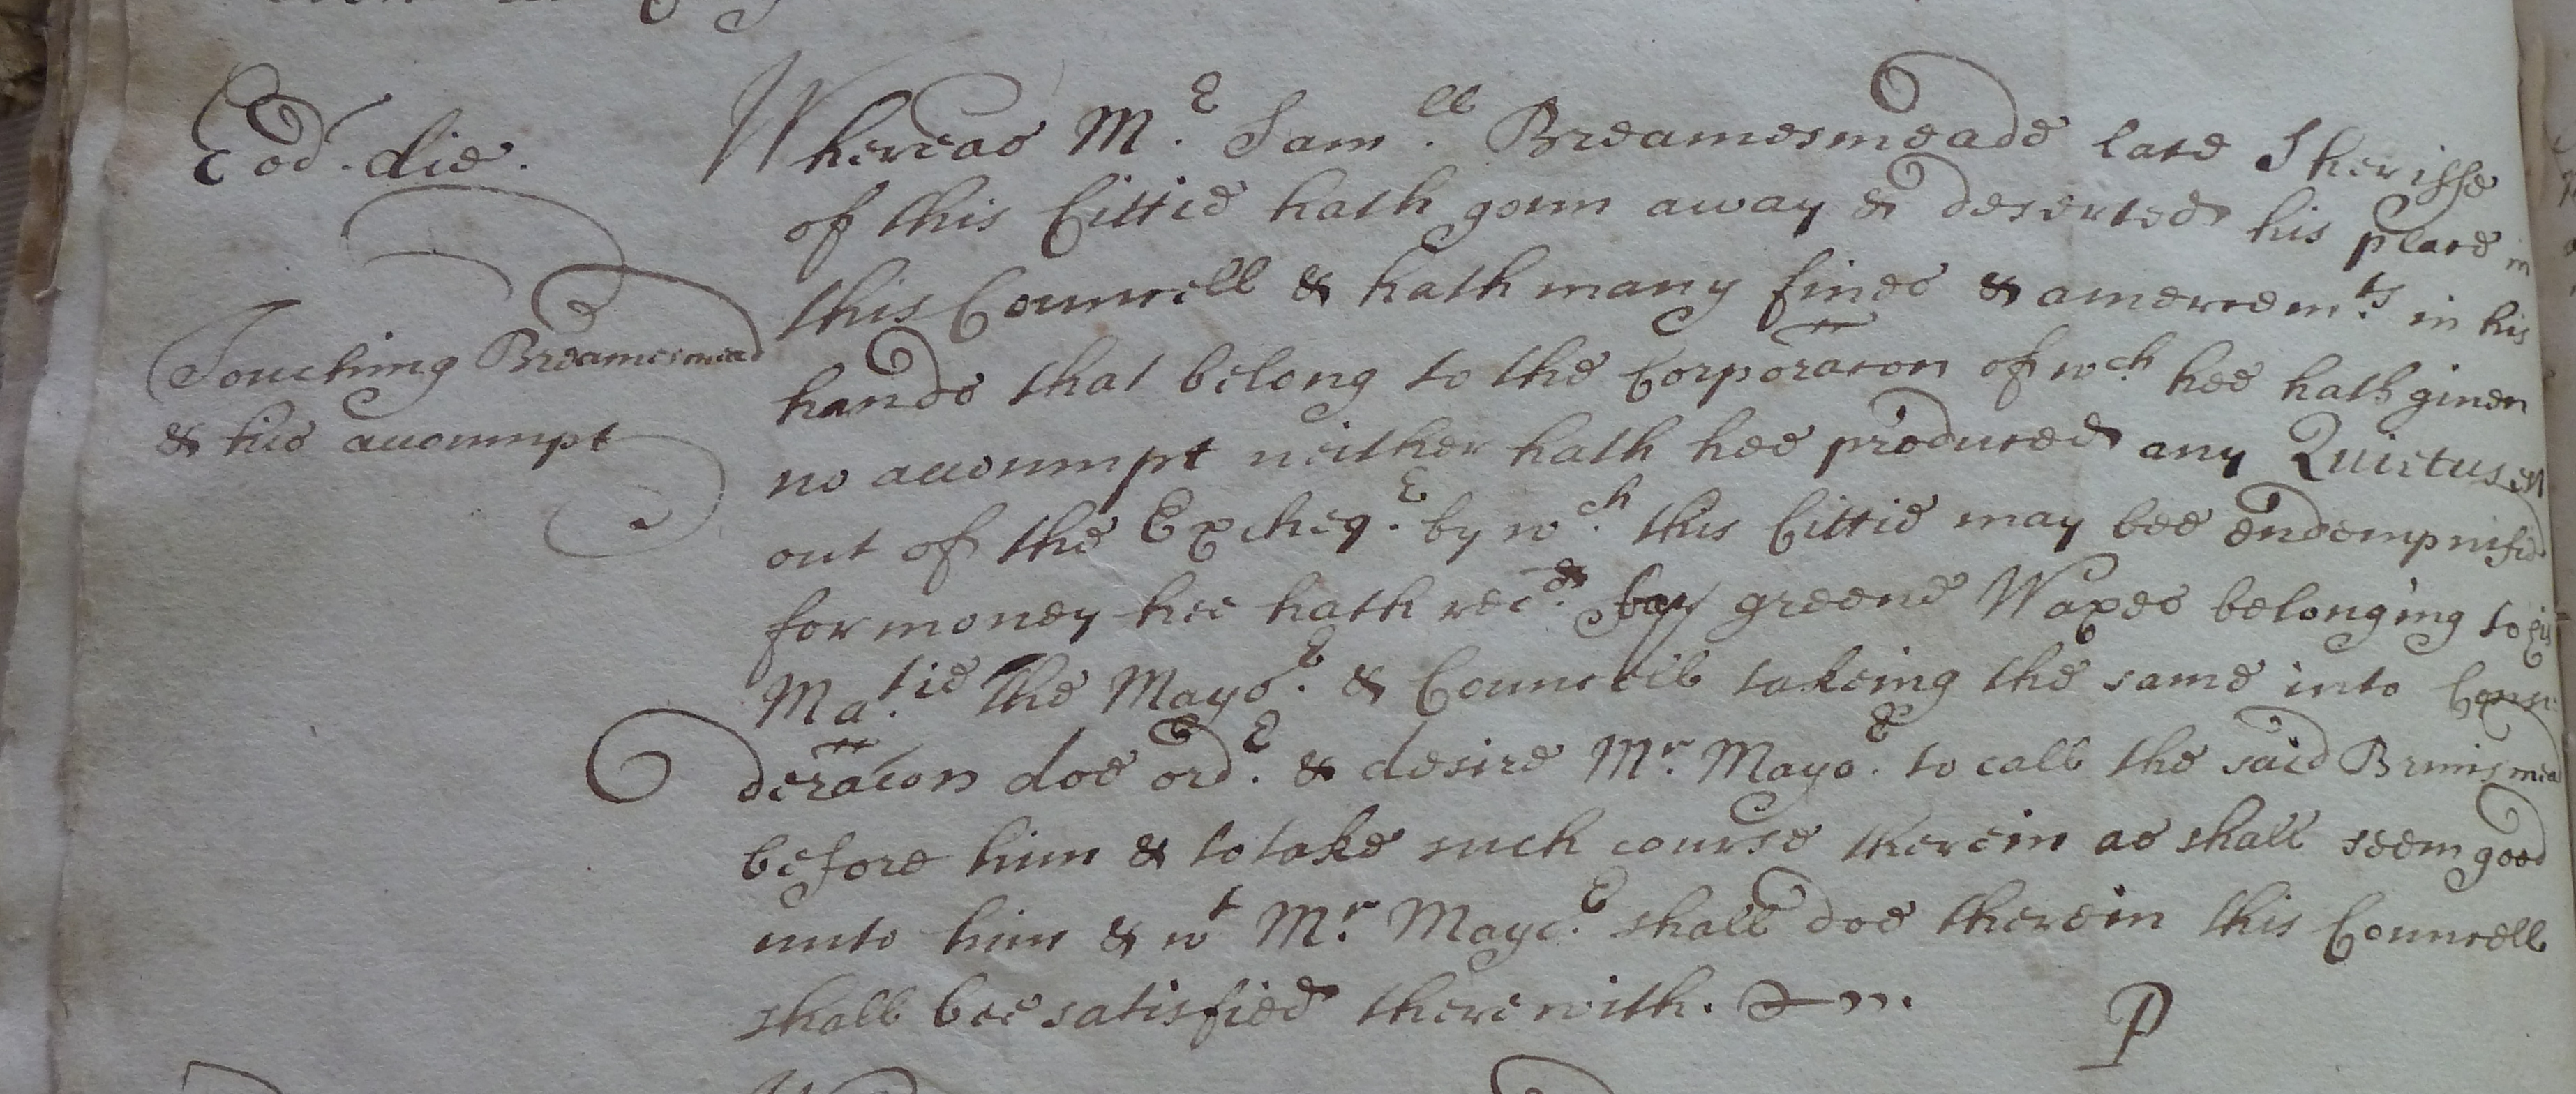 Eod. die.
Touching Breamesmead
& his accoumpt
Whereas Mr. Samll. Breamesmeade late Sheriffe
of this Cittie hath gonn away & deserted his place in
this Councell & hath many fines & amercemts. in his
hands that belong to the Corporacon of wch. hee hath given
no accoumpt neither hath hee produced any Quietus est
out of the Excheqr. by wch. this Cittie may bee endempnified
for money hee hath recd. for greene Waxes belonging to his
Matie. the Mayor. & Councell takeing the same into Consi
deracon doe ordr. & desire Mr. Mayor. to call the said Brimsmea
before him & to take such course therein as shall seem good
unto him & wt Mr. Mayor. shall doe therein this Councell
shall bee satisfied therewith.
P